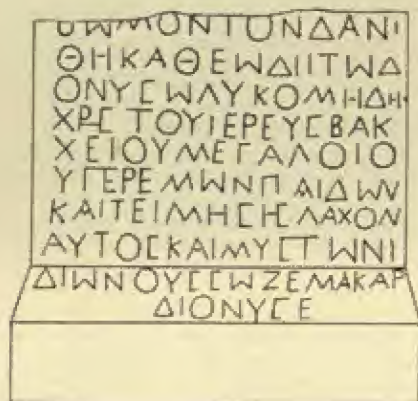 ΒΩΜΟΝΤΟΝΔΑΝΙ
ΘΗΚΑΘΕΩΔΙΙΤΩΔ
ΟΝΥϹΩΛΥΚΟΜΗΔΗ
ΧΡΗϹΤΟΥΙΕΡΕΥϹΒΑΚ
ΧΕΙΟΥΜΕΓΑΛΟΙΟ
ΥΓΕΡΕΜΩΝΠ ΑΙΔΩΝ
ΚΑΙΤΕΙΜΗϹΗϹΛΑΧΟΝ
ΑΥΤΟϹΚΑΙΜΥϹΤΩΝΙ
ΔΙΩΝΟΥϹϹΩΖΕΜΑΚΑΡ
ΔΙΟΝΥϹΕ